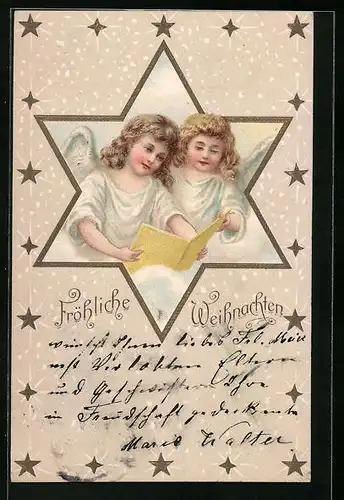 Fröhliche Weihnachten
wünscht Ihnen liebes Frl.
nebst Verlobten Eltern
und Geschwistern Ihre
in Freundschaft gedenkende
Marie Walter.